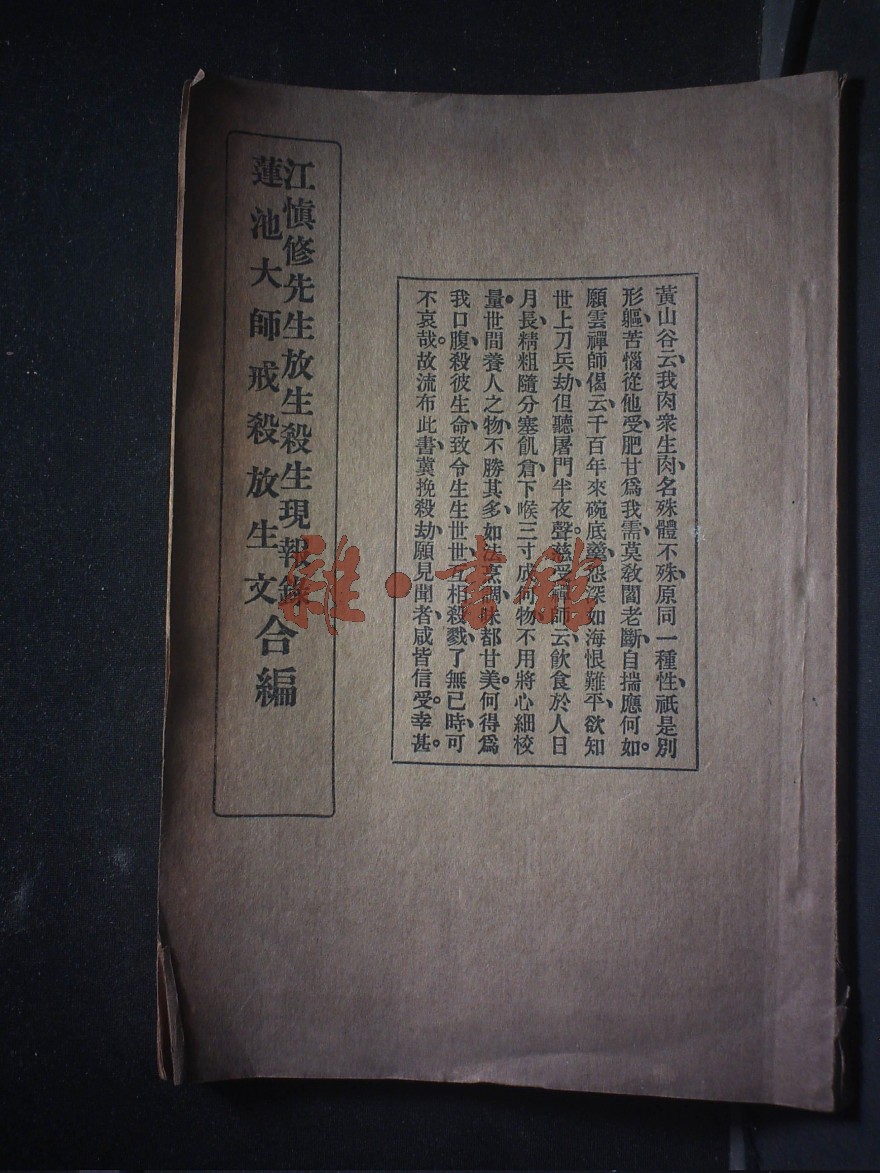 黃山谷云、我肉衆生肉、名殊體不殊、原同一種性、祇是別
形軀、苦惱從他受、肥甘爲我需、莫敎閻老斷、自揣應何如。
願雲禪師偈云、千百年來碗底羹、怨深如海恨難平、欲知
世上刀兵劫、但聽屠門半夜聲。慈受禪師云、飲食於人日
月長、精粗隨分塞飢倉、下喉三寸成何物、不用將心細校
量。世間養人之物、不勝其多、如法烹調、味都甘美。何得爲
我口腹、殺彼生命、致令生生世世、互相殺戮、了無已時、可
不哀哉。故流布此書、冀挽殺劫、願見聞者、咸皆信受。幸甚。
江愼修先生放生殺生現報錄
蓮池大師戒殺放生文
合編
雜·書館